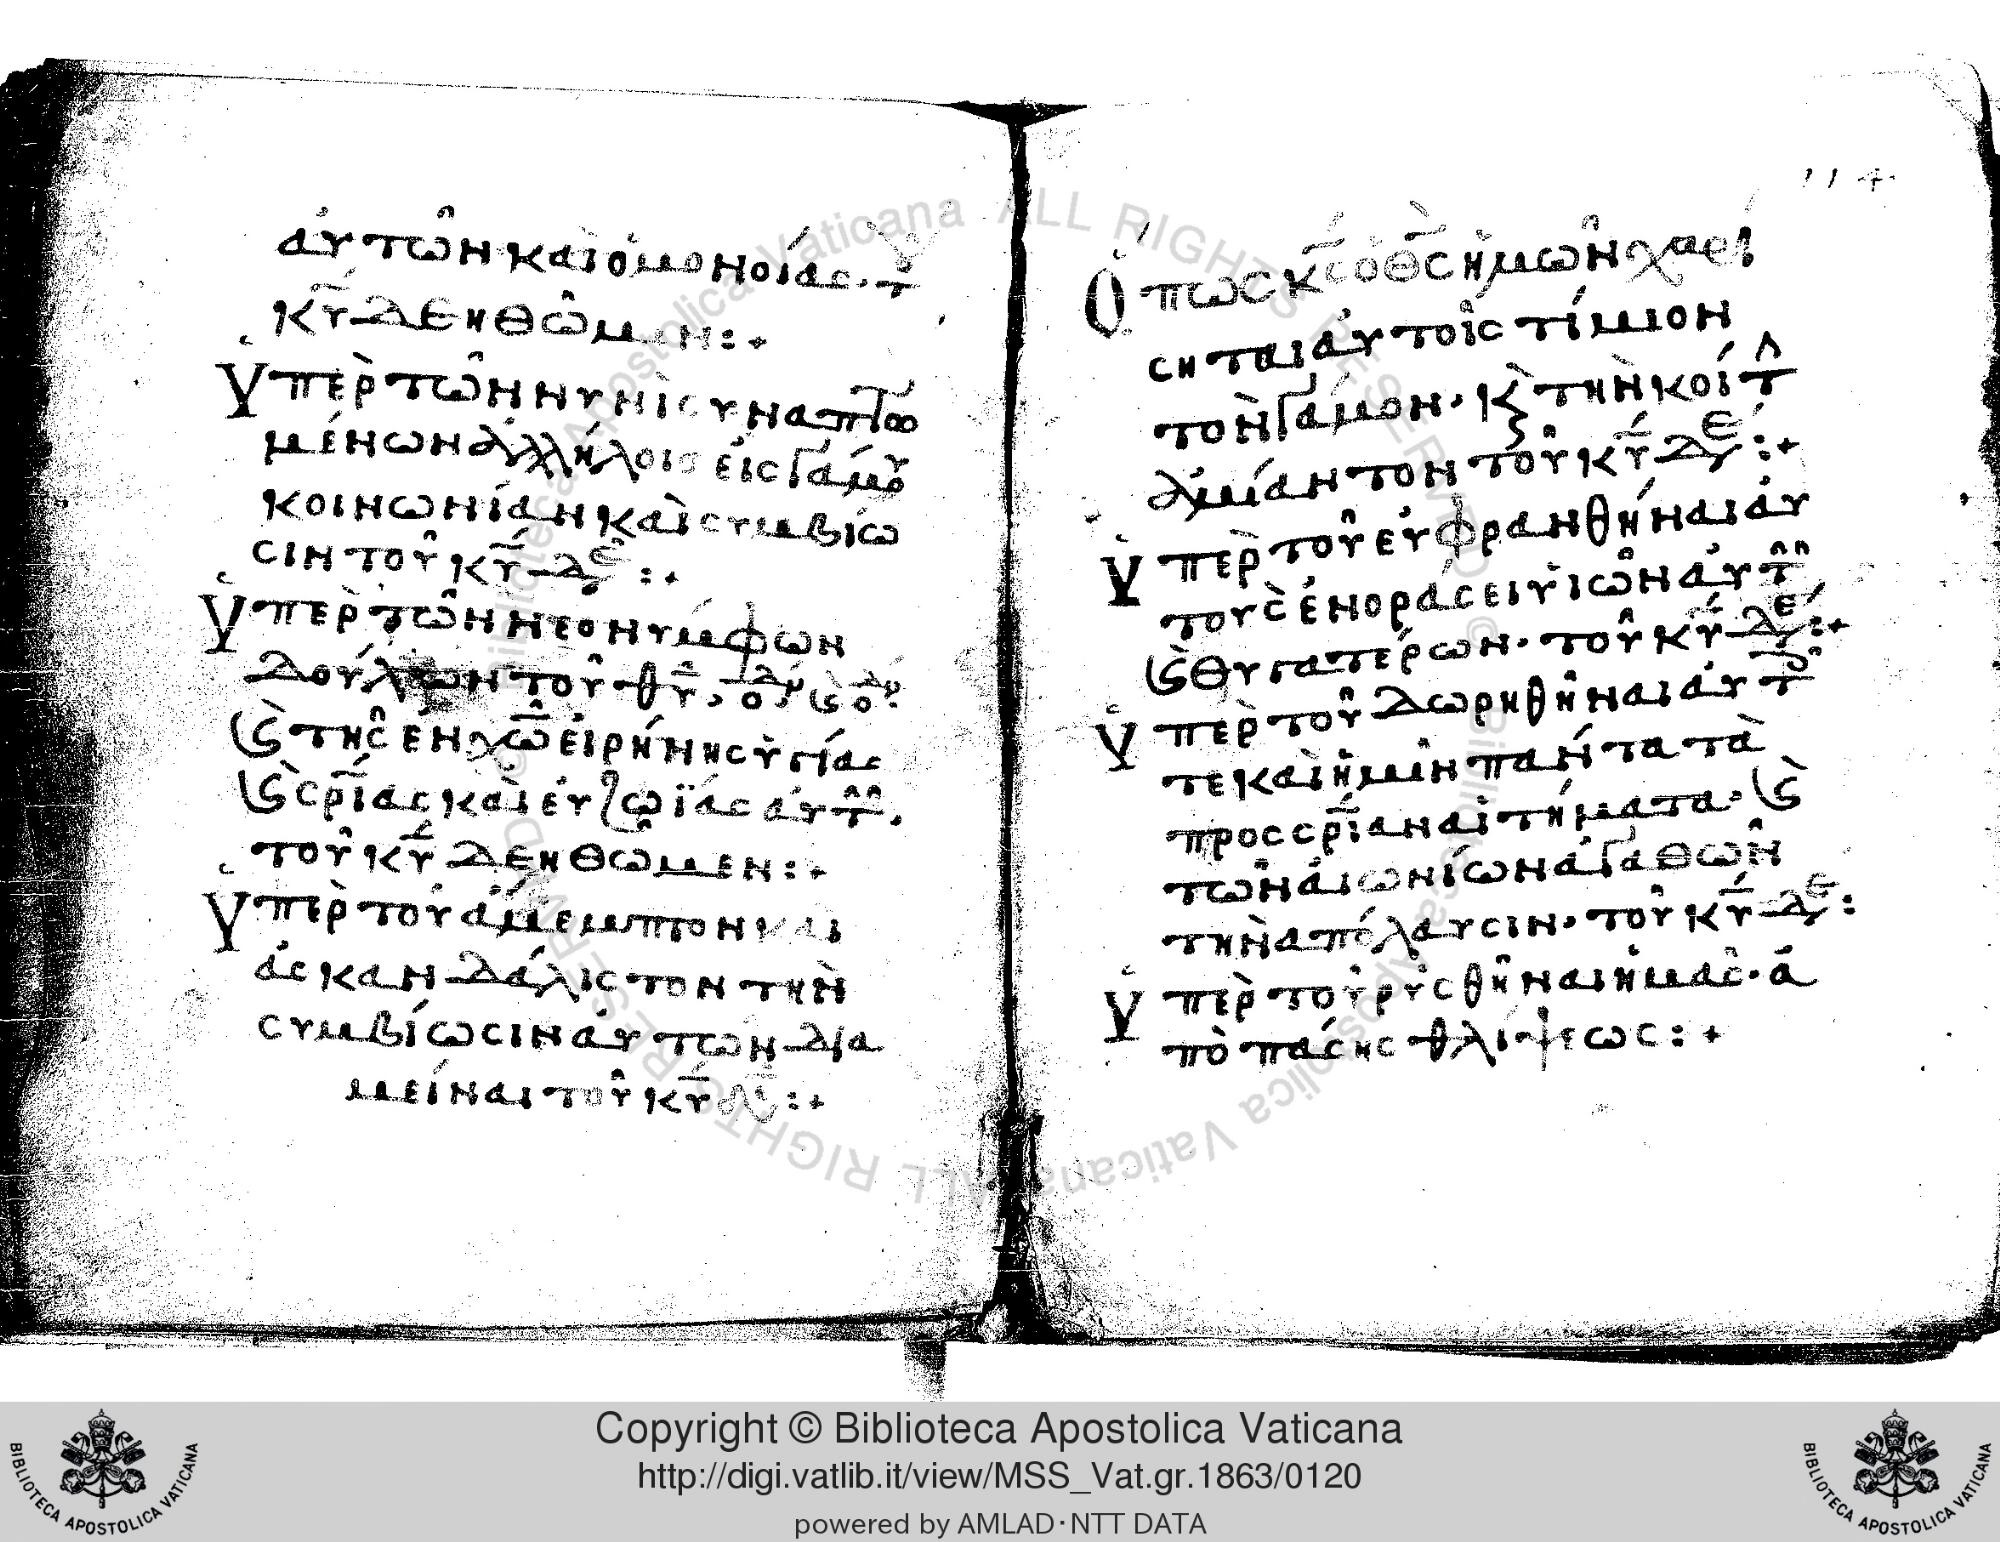 αὐτῶν καὶ ὁμονοίας· τ
κ̅υ̅ δεηθῶμεν:+
Ὑπὲρ τῶν νυνὶ συναπτο
μένων ἀλλήλοις εἰς γάμου
κοινωνίαν καὶ συμβίω
σιν τοῦ κ̅υ̅ δε:+
Ὑπὲρ τῶν νεονύμφων
δούλων τοῦ θ̅υ̅, τόν δ ϗ τόν δ
ϗ τῆς ἐν χ̅ω̅ εἰρήνης ὑγίας
ϗ σ̅ρ̅ίας καὶ εὐζωΐας αὐτ·
τοῦ κ̅υ̅ δεηθῶμεν:+
Ὑπὲρ τοῦ ἄμεμπτον καὶ
ἀσκανδάλιστον τὴν
συμβίωσιν αὐτῶν δια
μεῖναι τοῦ κ̅υ̅ δε:+
114
Ὅπως κ̅ς̅ ὁ θ̅ς̅ ἡμῶν χαρί
σηται αὐτοῖς τίμιον
τὸν γάμον· ϗ τὴν κοίτ
ἀμίαντον τοῦ κ̅υ̅ δε:+
Ὑπὲρ τοῦ εὐφρανθῆναι αὐ
τοὺς ἐν ὁράσει υἱῶν αὐτ
ϗ θυγατέρων· τοῦ κ̅υ̅ δε:+
Ὑπὲρ τοῦ δωρηθῆναι αὐτ
τε καὶ ἡμῖν πάντα τὰ
προς σ̅ρ̅ίαν αἰτήματα· ϗ
τῶν αἰωνίων ἀγαθῶν
τὴν ἀπόλαυσιν· τοῦ κ̅υ̅ δε:
Ὑπὲρ τοῦ ῥυσθῆναι ἡμᾶς· ἀ
πὸ πάσης θλίψεως:+
Copyright © Biblioteca Apostolica Vaticana
http://digi.vatlib.it/view/MSS_Vat.gr.1863/0120
powered by AMLAD·NTT DATA
BIBLIOTECA APOSTOLICA VATICANA
BIBLIOTECA APOSTOLICA VATICANA